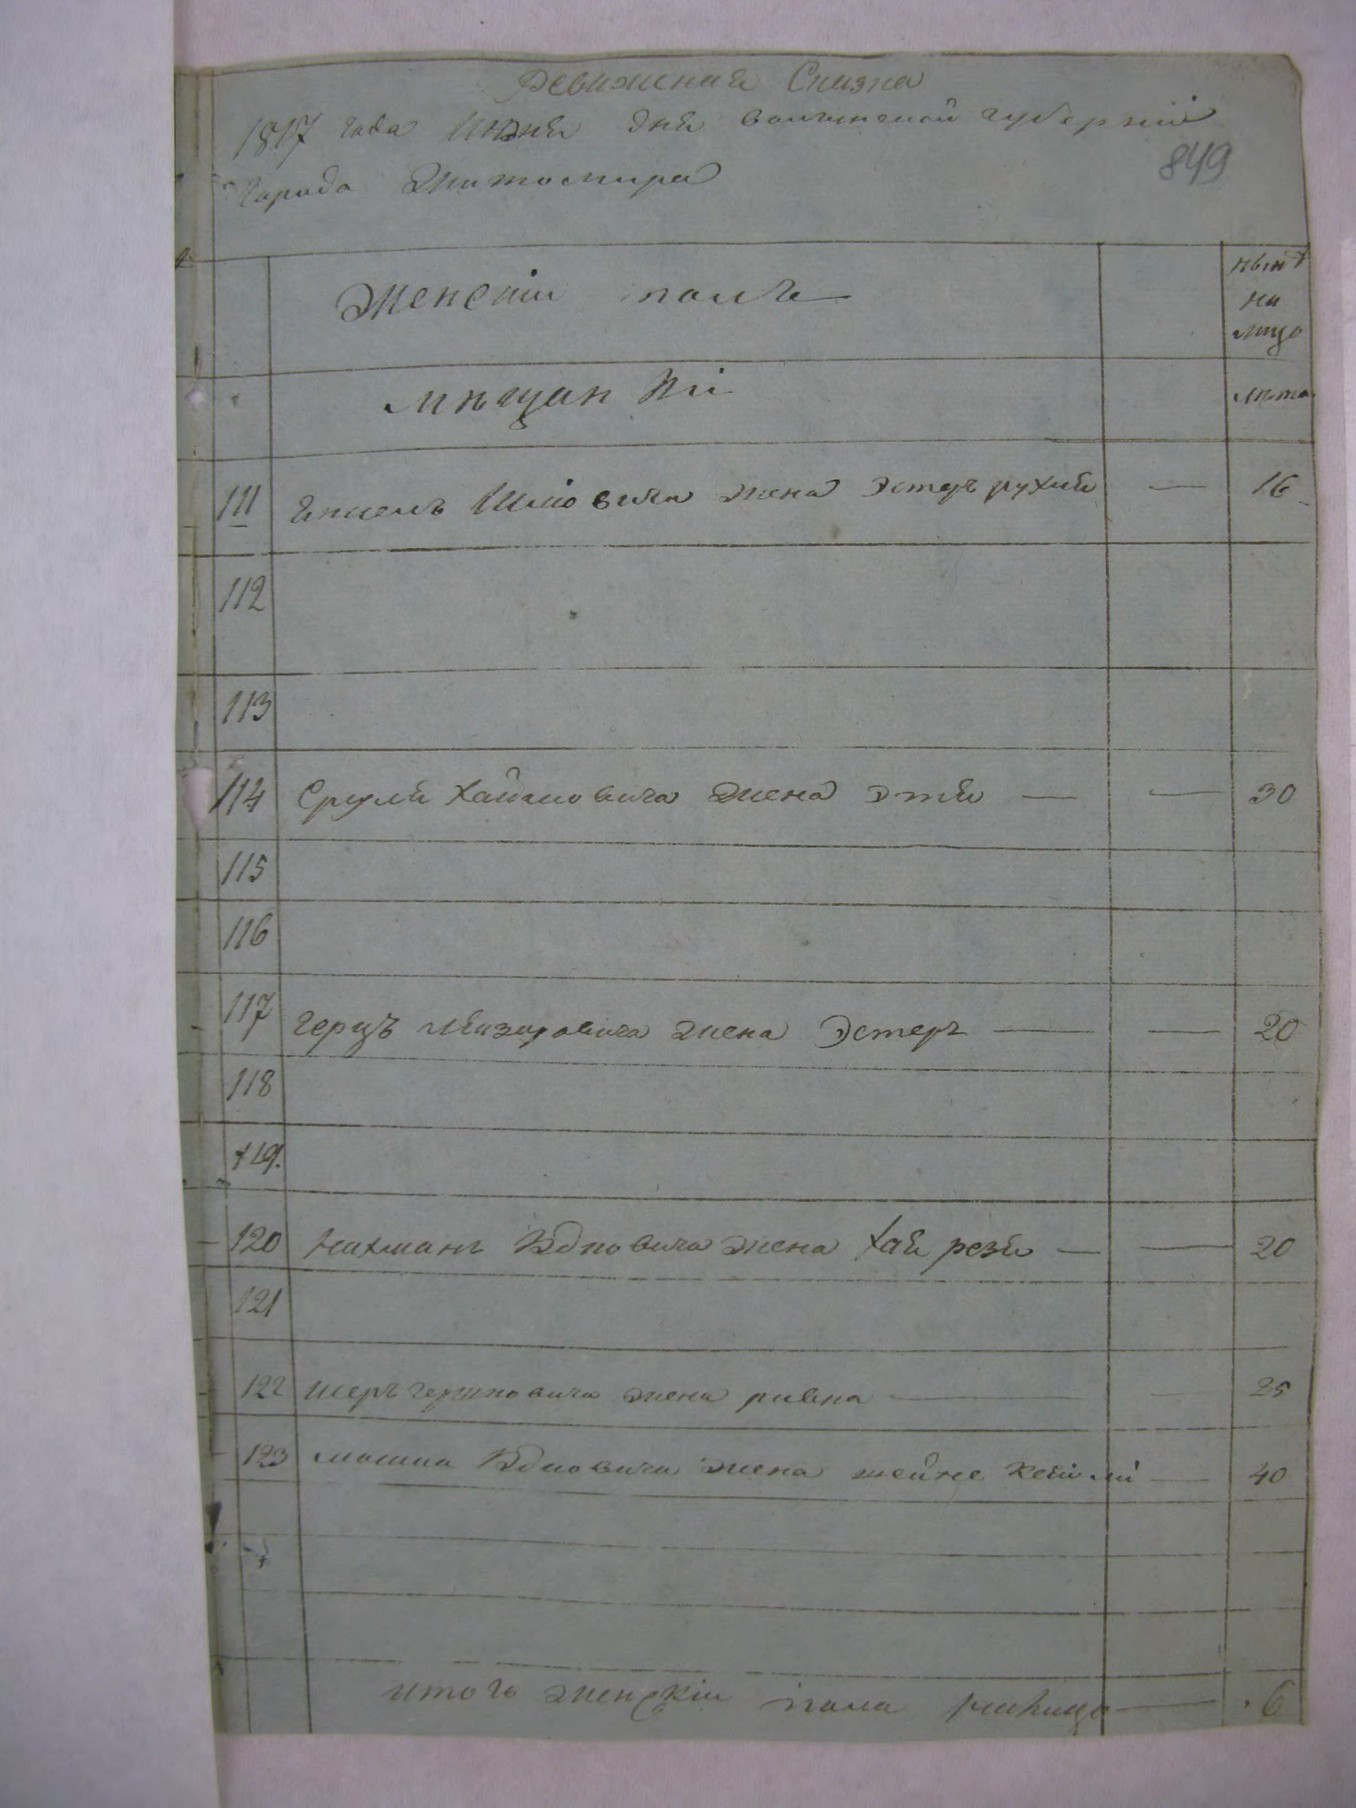 Ревижская Сказка
1817 года Июня дня волынской губерніи
города Житомира
849
Женскій полъ
нынѣ
на
лицо
мѣщан
лѣта
111 Шмовича жена Эстеръ рухля — 16
112
113
114 Сруля Хаймовича жена Этя — — 30
115
116
117 Герцъ Лейзаровича жена Эстеръ — — 20
118
119.
120 Нахманъ жена Хая рейзя — — 20
121
122 Гершковича жена ривка — — 25
123 мошка жена шейне — 40
итого женскій пола 6